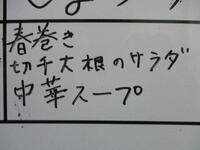 春巻き
切千大根のサラダ
中華スープ